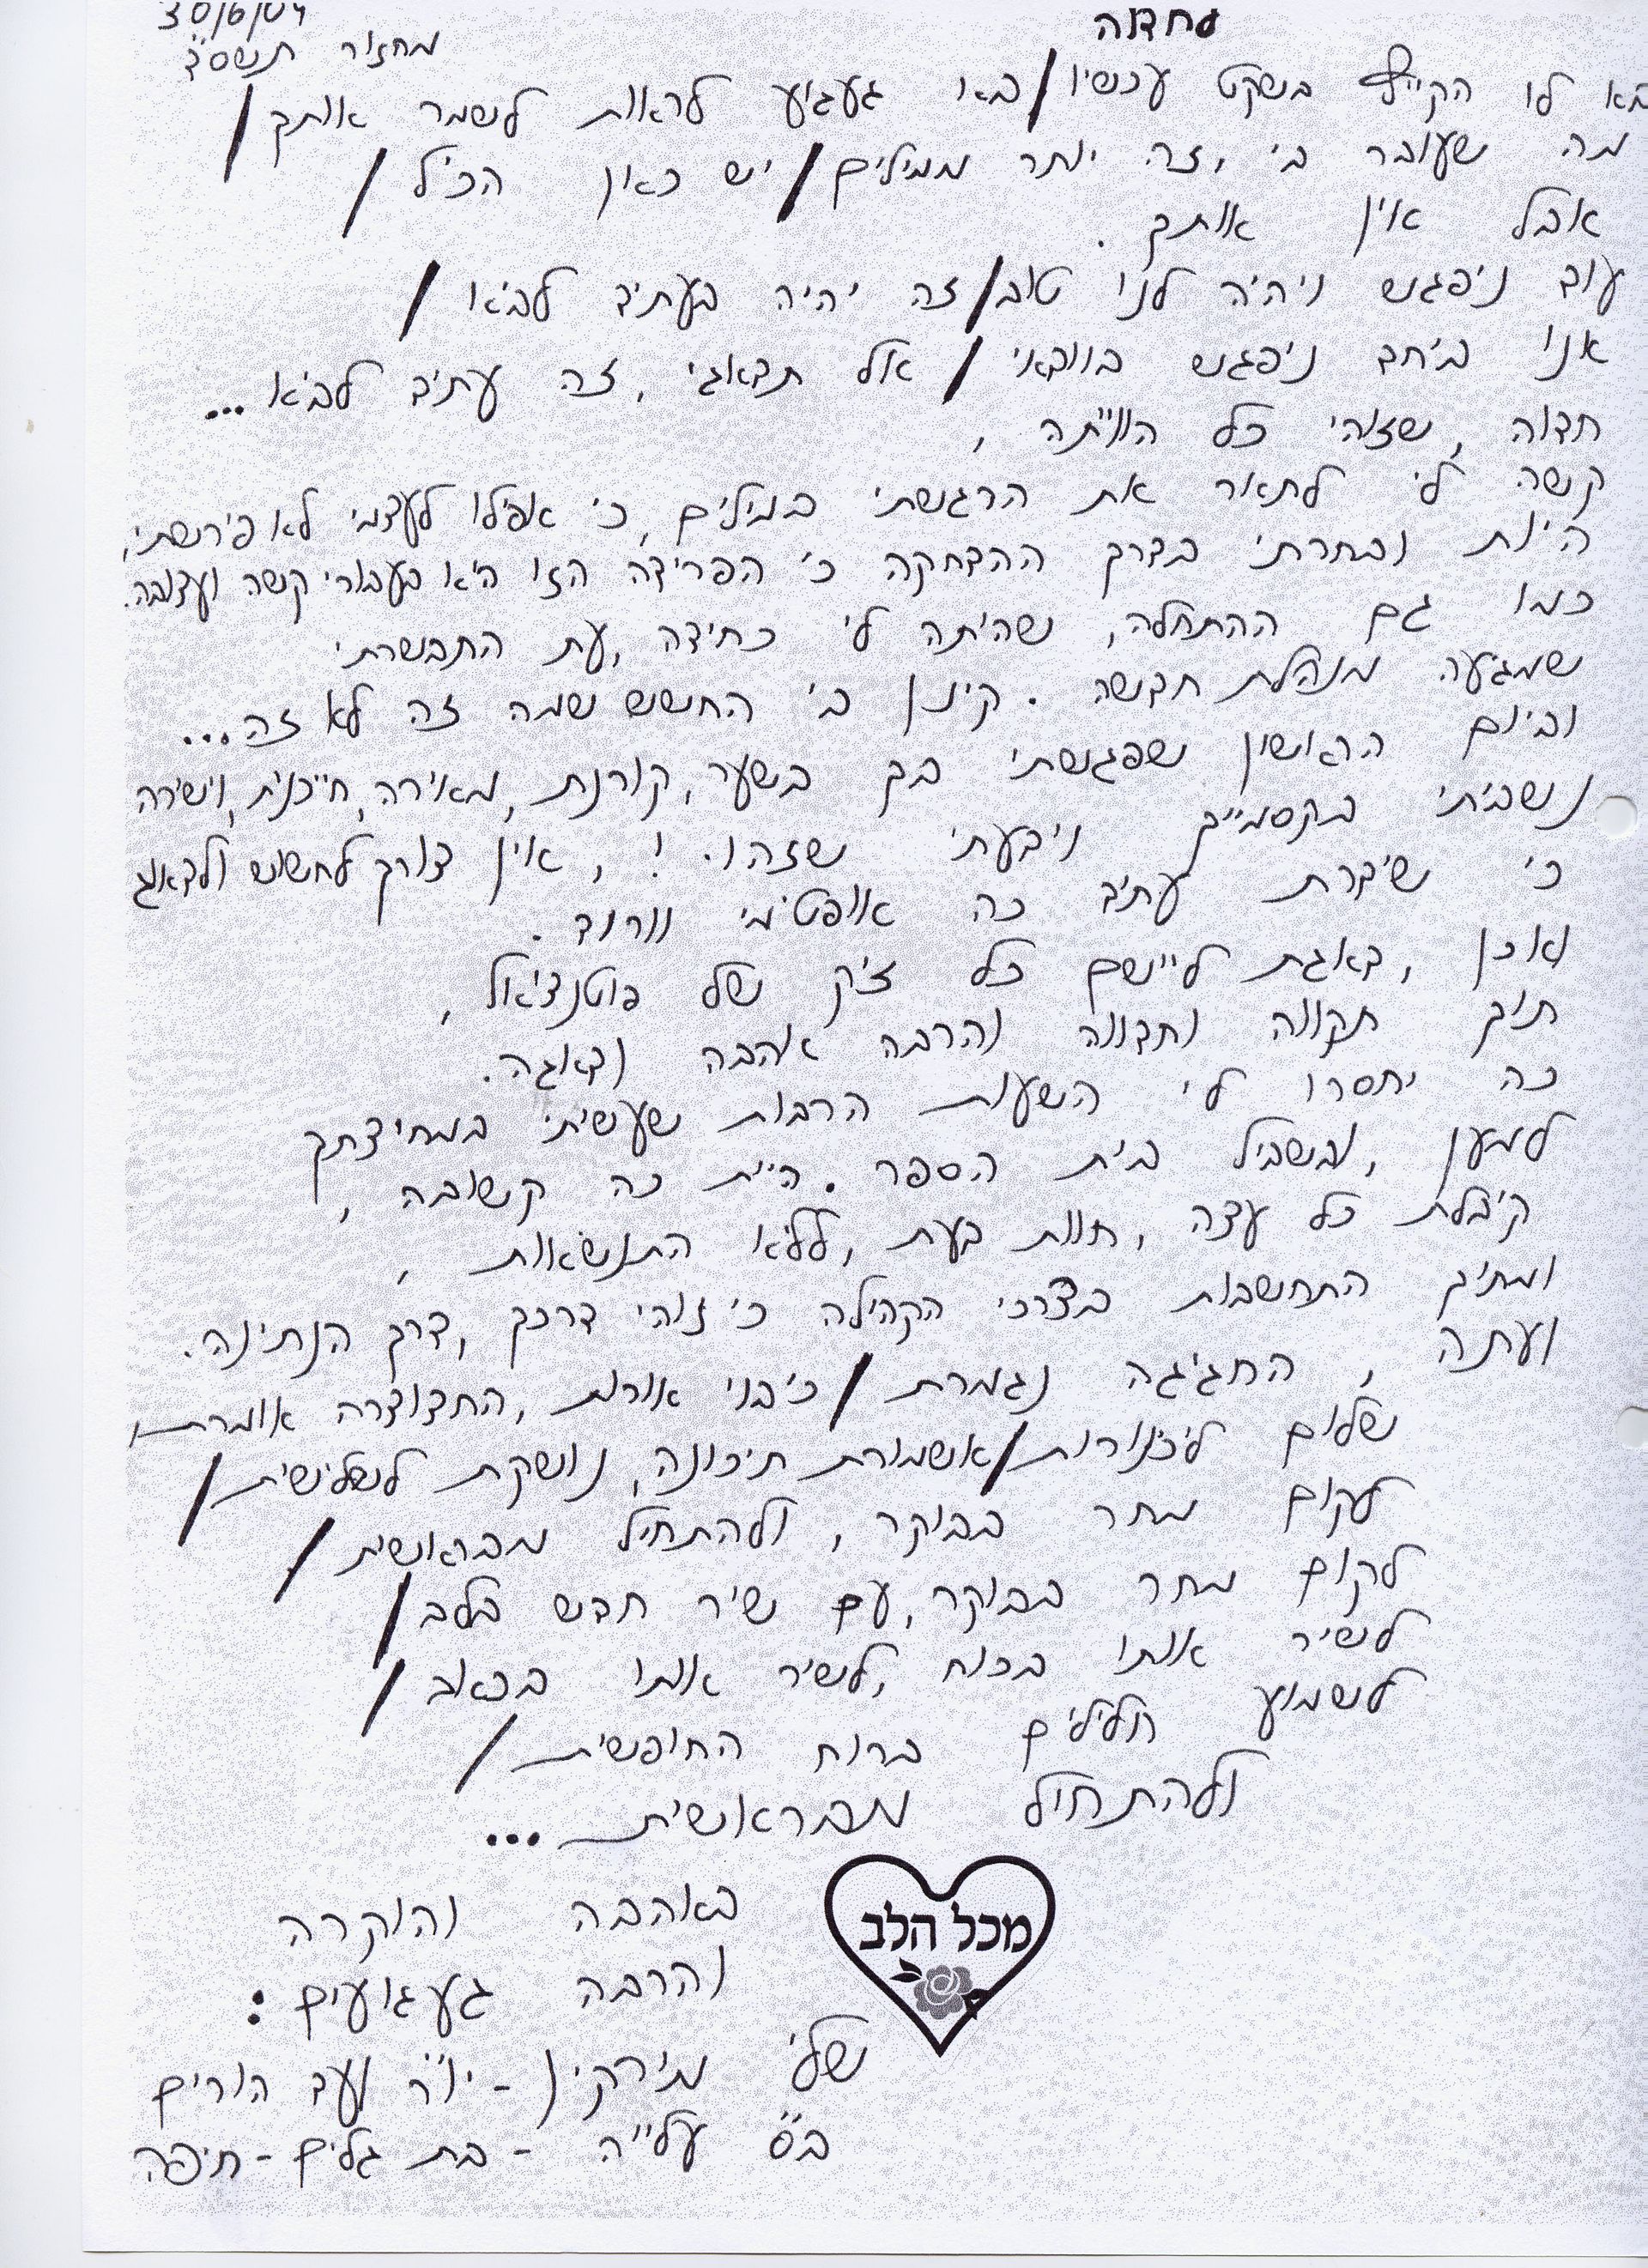 30/6/04
לחדוה
מחזור תשס"ד
בא לו הקייץ בשקט עכשיו/באו געגוע לראות לשמר אותך/
מה שעובר בי, זה יותר ממילים/יש כאן הכל/
אבל אין אותך.
עוד ניפגש ויהיה לנו טוב/זה יהיה בעתיד לבוא/
אנו ביחד ניפגש בוודאי/אל תדאגי, זה עתיד לבוא...
חדוה, שזוהי כל הווייתה,
קשה לי לתאר את הרגשתי במילים, כי אפילו לעצמי לא פירשתי,
היות ובחרתי בדרך ההדחקה כי הפרידה הזו היא בעבורי קשה ועצובה.
כמו גם ההתחלה, שהיתה לי כחידה, עת התבשרתי
שמגיעה מנהלת חדשה. קינן בי החשש שמה זה לא זה...
וביום הראשון שפגשתי בך בשער, קורנת, מאירה, חייכנית, וישירה
נשביתי בקסמייך וידעתי שזהו.!, אין צורך לחשוש ולדאוג
כי שידרת עתיד כה אופטימי וורוד.
ואכן, דאגת ליישם כל זיק של פוטנציאל,
תוך תקווה וחדווה והרבה אהבה ודאגה.
כה יחסרו לי השעות הרבות שעשיתי במחיצתך
למען, ובשביל בית הספר. היית כה קשובה,
קיבלת כל עצה, חוות דעת, ללא התנשאות,
ומתוך התחשבות בצרכי הקהילה כי זוהי דרכך, דרך הנתינה.
ועתה, החגיגה נגמרת/כיבוי אורות, החצוצרה אומרת,
שלום לכינורות/אשמורת תיכונה, נושקת לשלישית/
לקום מחר בבוקר, ולהתחיל מבראשית/
לקום מחר בבוקר, עם שיר חדש בלב/
לשיר אותו בכוח, לשיר אותו בכאב/
לשמוע חלילים ברוח החופשית/
ולהתחיל מבראשית...
מכל הלב
באהבה והוקרה
והרבה געגועים:
שלי מירקין - יו"ר וועד הורים
בי"ס עלי"ה - בת גלים - חיפה